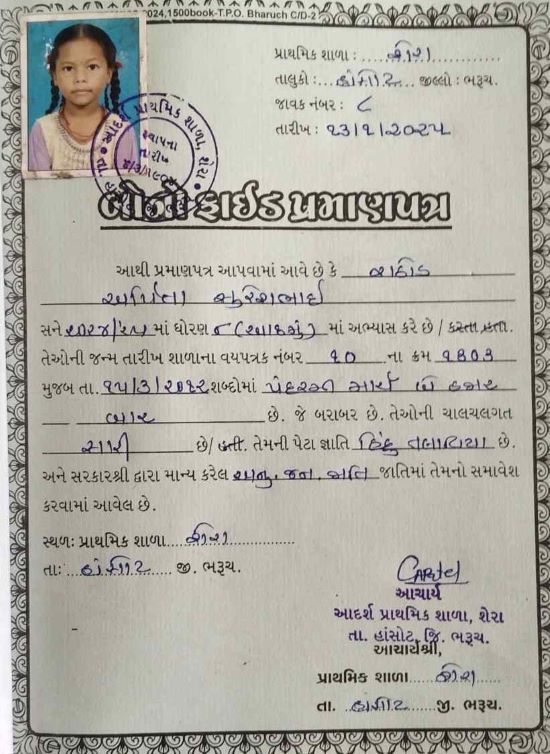 2024,1500book-T.P.O. Bharuch C/D-2
પ્રાથમિક શાળા : શેરા
તાલુકો : હાંસોટ જીલ્લો : ભરૂચ.
જાવક નંબર : ૮
તારીખ : ૧૩/૧/૨૦૨૫
આદર્શ પ્રાથમિક શાળા, શેરા
સ્થાપના
તારીખ
બોનાફાઈડ પ્રમાણપત્ર
આથી પ્રમાણપત્ર આપવામાં આવે છે કે રાઠોડ
અર્પિતા સુરેશભાઈ
સને ૨૦૨૪/૨૫ માં ધોરણ ૮ (આઠમું) માં અભ્યાસ કરે છે / કરતા હતા.
તેઓની જન્મ તારીખ શાળાના વયપત્રક નંબર ૧૦ ના ક્રમ ૧૪૦૩
મુજબ તા. ૧૫/૩/૨૦૧૨ શબ્દોમાં પંદરમી માર્ચ બે હજાર
બાર છે. જે બરાબર છે. તેઓની ચાલચલગત
સારી છે/ હતી. તેમની પેટા જ્ઞાતિ હિંદુ તલાવિયા છે.
અને સરકારશ્રી દ્વારા માન્ય કરેલ અનુ. જન. જાતિ જાતિમાં તેમનો સમાવેશ
કરવામાં આવેલ છે.
સ્થળ: પ્રાથમિક શાળા શેરા
તા: હાંસોટ જી. ભરૂચ.
આચાર્ય
આદર્શ પ્રાથમિક શાળા, શેરા
તા. હાંસોટ, જિ. ભરૂચ.
આચાર્યશ્રી,
પ્રાથમિક શાળા શેરા
તા. હાંસોટ જી. ભરૂચ.